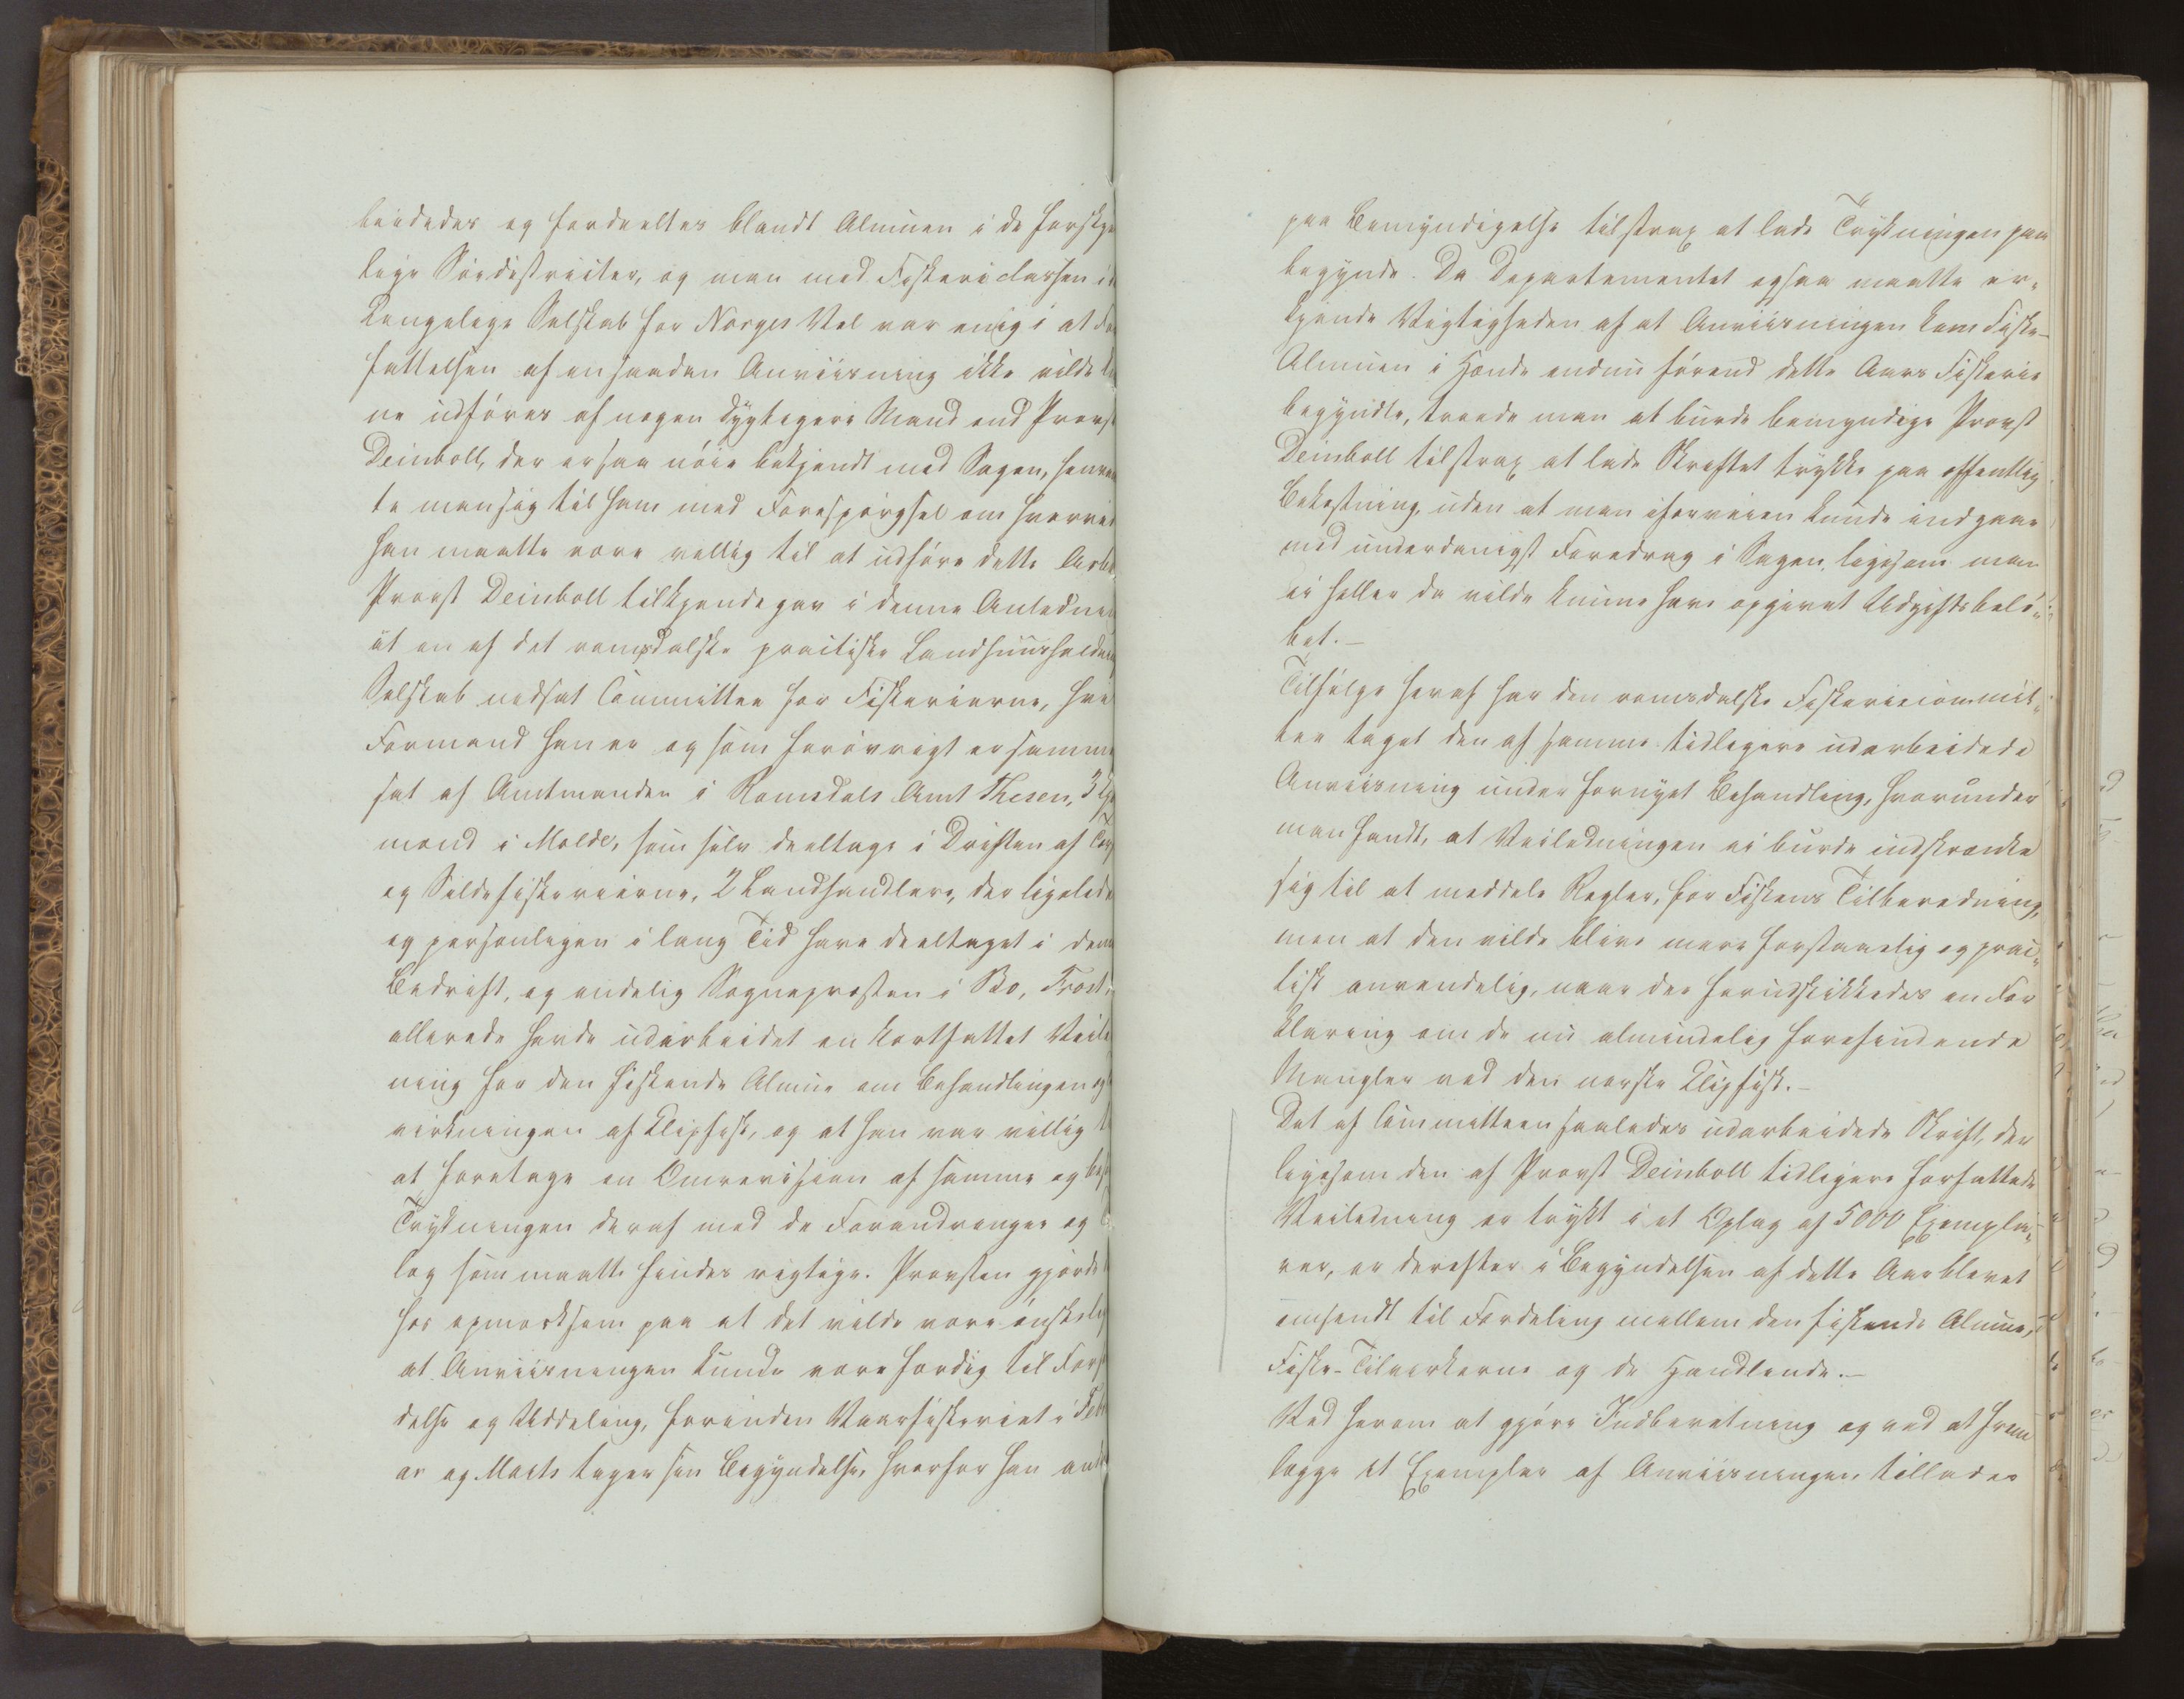 beidedes og fordeeltes blandt Almuen i de forskje
lige Södistricter, og man med Fiskericlassen i
Kongelige Selskab for Norges Vel var enig i at For
fattelsen af en saadan Anviisning ikke vilde kun
ne udföres af nogen dygtigere Mand end Provst
Deinboll, der er saa nöie bekjendt med Sagen, henven
te man sig til ham med Forespörgsel om hvorvid
han maatte være villig til at udföre dette Arbe
Provst Deinboll tilkjendegav i denne Anledni
at en af det romsdalske practiske Landhuusholdn
Selskab nedsat Committee for Fiskerierne, hvis
Formand han er og som forövrigt er sammen
sat af Amtmanden i Romsdals Amt Thesen, 3 Kjö
mænd i Molde, som selv deeltage i Driften af Tor
og Sildefiskerierne, 2 Landhandlere, der ligelede
og personligen i lang Tid have deeltaget i den
Bedrift, og endelig Sognepræsten i Bo, Frost,
allerede havde udarbeidet en kortfattet Veile
ning for den fiskende Almue om Behandlingen og
virkningen af Klipfisk, og at han var villig t
at foretage en Omrevision af samme og bes
Trykningen deraf med de Forandringer og
læg som maatte findes vigtige. Provsten gjorde
hos opmærksom paa at det vilde være önskelig
at Anviisningen kunde være færdig til Fors
delse og Uddeling, forinden Vaarfiskeriet i Feb
ar og Marts tager sin Begyndelse, hvorfor han an
paa Bemyndigelse til strax at lade Trykningen paa
begynde. Da Departementet ogsaa maatte er-
kjende Vigtigheden af at Anviisningen kom Fiske-
Almuen i Hænde endnu förend dette Aars Fiskerie
begyndte, troede man at burde bemyndige Provst
Deinboll til strax at lade Skriftet trykke paa offentlig
Bekostning, uden at man iforveien kunde indgaae
med underdanigst Foredrag i Sagen, ligesom man
ei heller da vilde kunne have opgivet Udgiftsbelö-
bet.-
Tilfölge heraf har den romsdalske Fiskeriecommit-
tee taget den af samme tidligere udarbeidede
Anviisning under fornyet Behandling, hvorunder
man fandt, at Veiledningen ei burde indskrænke
sig til at meddele Regler, for Fiskens Tilberedning,
men at den vilde blive mere forstaaelig og prac-
tisk anvendelig, naar der forudskikkedes en For
klaring om de nu almindelig forefindende
Mangler ved den norske Klipfisk.-
Det af Committeen saaledes udarbeidede Skrift, der
ligesom den af Provst Deinboll tidligere forfattede
Veiledning er trykt i et Oplag af 5000 Exempla-
rer, er derefter i Begyndelsen af dette Aar blevet
omsendt til Fordeling mellem den fiskende Almue,
Fiske-Tilvirkerne og de Handlende.-
Ved herom at gjöre Indberetning og ved at frem
lægge et Exemplar af Anviisningen, tillader